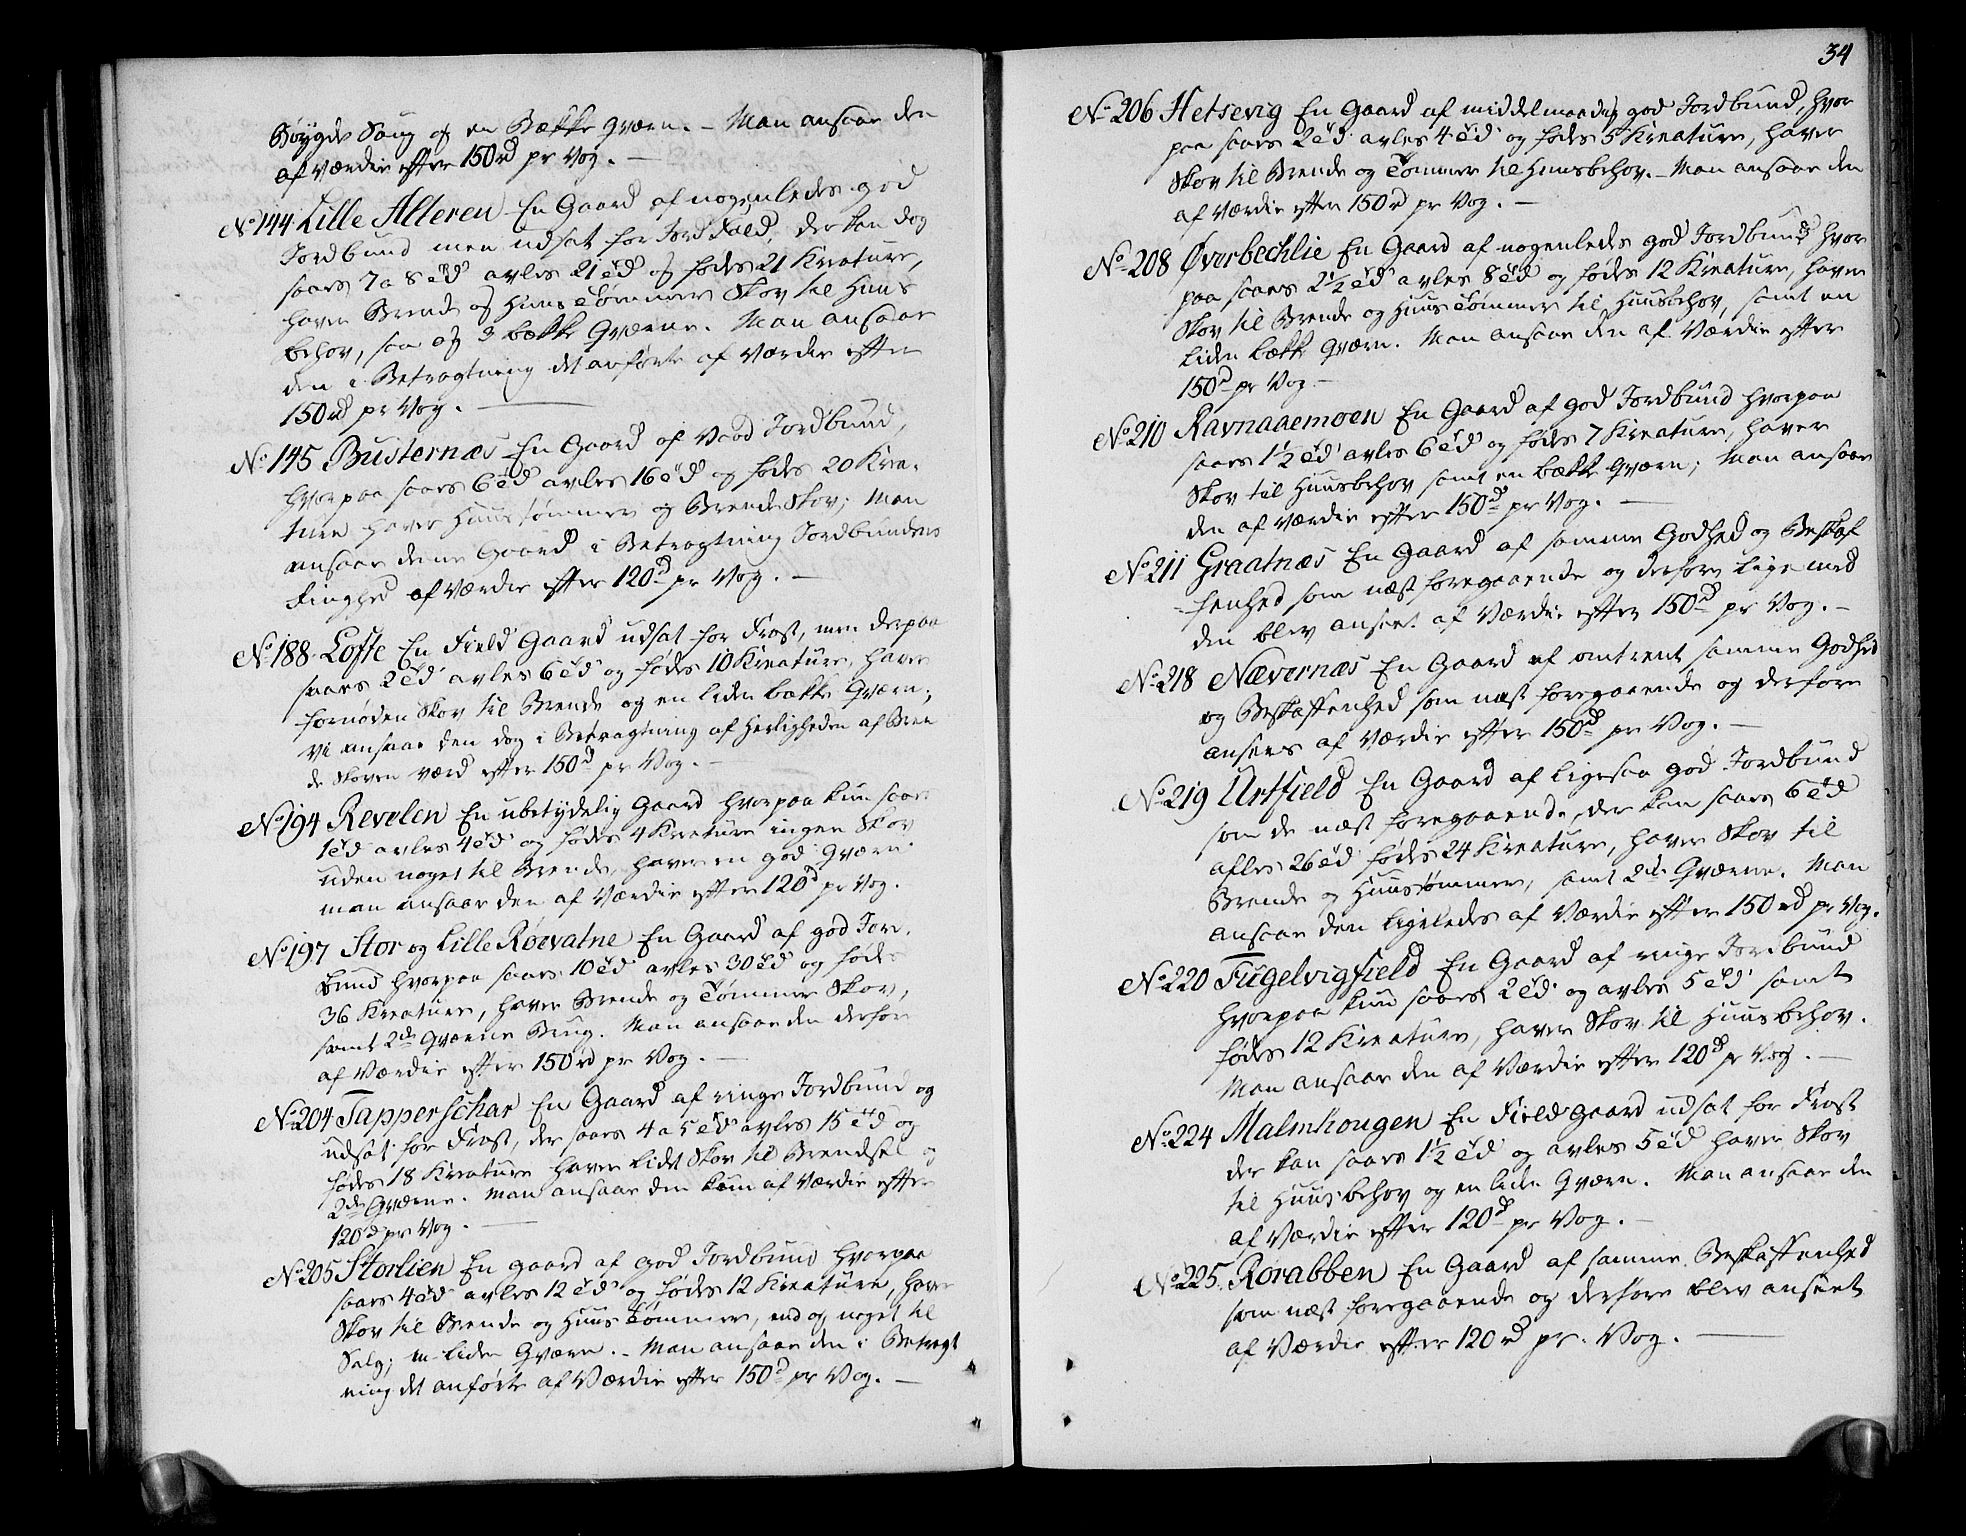 Bøygde Saug og en Bække Qværn. – Man ansaae den
af Værdie efter 150 rd pr Vog. –
No 144 Lille Alteren En Gaard af nogenledes god
Jordbund men udsat for Jord Fald, der kan dog
saaes 7 a 8 td avles 21 td og födes 21 Kreature,
haver Brende og Huus Tømmer Skov til Huus
behov, saa og 3 bække Qværne. Man ansaae
den i Betragtning det anførte af Værdie efter
150 rd pr Vog. –
No 145 Busternæs En Gaard af Vaad Jordbund,
hvorpaa saaes 6 td avles 16 td og födes 20 Krea-
ture haver Huustømmer og Brende Skov; Man
ansaae denne Gaard i Betragtning Jordbundens
Ringhed af Værdie efter 120 d pr Vog. –
No 188 Lofte En Field Gaard udsat for Frost, men derpaa
saaes 2 td avles 6 td og födes 10 Kreature, haver
fornøden Skov til Brende og en liden bække Qværn;
Vi ansaae den dog i Betragtning af Herligheden af Bren
de Skoven værd efter 150 d pr Vog. –
No 194 Revelen En ubetydelig Gaard hvorpaa kun saaes
1 td avles 4 td og födes 4 Kreature ingen Skov
uden noget til Brende, haver en god Qværn.
man ansaae den af Værdie efter 120 d pr Vog.
No 197 Stor og Lille Røvatne En Gaard af god Jord-
bund hvorpaa saaes 10 td avles 30 td og födes
36 Kreature, haver Brende og Tømmer Skov,
samt 2de Qværne Brug. Man ansaae den derfor
af Værdie efter 150 rd pr Vog. –
No 204 Tapperschar En Gaard af ringe Jordbund og
udsat for Frost, der saaes 4 a 5 td avles 15 td og
födes 18 Kreature haver lidt Skov til Brendsel og
2de Qværne. Man ansaae den kun af Værdie efter
120 d pr Vog. –
No 205 Storlien En gaard af god Jordbund hvorpaa
saaes 4 td avles 12 td og födes 12 Kreature, haver
Skov til Brende og Huus Tømmer, end og noget til
Salg; en liden Qværn. – Man ansaae den i Betragt
ning det anførte af Værdie efter 150 d pr Vog. –
34
No 206 Hetsevig En Gaard af middelmaadig god Jordbund, hvor
paa saaes 2 td avles 4 td og födes 5 Kreature, haver
Skov til Brende og Tømmer til Huusbehov. – Man ansaae den
af Værdie efter 150 d pr Vog. –
No 208 Øverbechlie En Gaard af nogenleds god Jordbund hvor
paa saaes 2 1/2 td avles 8 td og födes 12 Kreature, haver
Skov til Brende og Huus Tømmer til Huusbehov, samt en
liden bække Qværn. Man ansaae den af Værdie efter
150 d pr Vog –
No 210 Ravnaaemoen En Gaard af god Jordbund hvorpaa
saaes 1 1/2 td avles 6 td og födes 7 Kreature, haver
Skov til Huusbehov samt en bække Qværn; Man ansaae
den af Værdie efter 150 d pr Vog. –
No 211 Graatnæs En Gaard af samme Godhed og Beskaf
fenhed som næst foregaaende og derfore lige med
den blev anseet af Værdie efter 150 d pr Vog. –
No 218 Nævernæs En Gaard af omtrent samme Godhed
og Beskaffenhed som næst foregaaende og derfore
ansees af Værdie efter 150 d pr Vog. –
No 219 Urtfield En Gaard af ligesaa god Jordbund
som de næst foregaaende, der kan saaes 6 td
afles 26 td födes 24 Kreature, haver Skov til
Brende og Huustømmer, samt 2de Qværne. Man
ansaae den ligeledes af Værdie efter 150 rd pr Vog.
No 220 Fugelvigfield En Gaard af ringe Jordbund
hvorpaa kun saaes 2 td og avles 5 td samt
födes 12 Kreature, haver Skov til Huusbehov.
Man ansaae den af Værdie efter 120 d pr Vog. –
No 224 Malmhougen En Fieldgaard udsat for Frost
der kan saaes 1 1/2 td og avles 5 td haver Skov
til Huusbehov og en liden Qværn. Man ansaae den
af Værdie efter 120 d pr Vog. –
No 225. Rorabben En Gaard af samme Beskaffenhed
som næst foregaaende og derfore blev anseet
af Værdie efter 120 rd pr. Vog. –